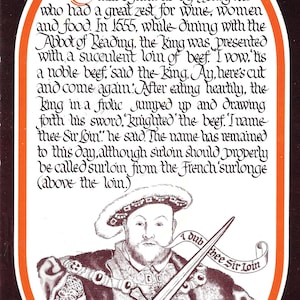 who had a great zest for wine, women
and food. In 1555, while dining with the
Abbot of Reading, the king was presented
with a succulent loin of beef. I vow, 'tis
a noble beef,' said the king. 'Ay, here's cut
and come again.' After eating heartily, the
king in a frolic jumped up and drawing
forth his sword, 'knighted' the beef. 'I name
thee Sir Loin,' he said. The name has remained
to this day, although sirloin should properly
be called surloin from the French 'surlonge'
(above the loin.)
I dub thee Sir Loin